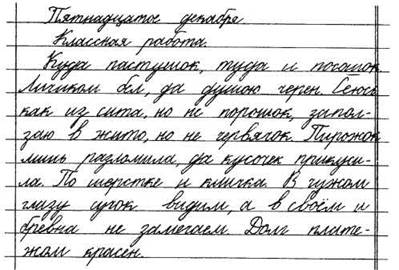 Пятнадцатое декабря
Классная работа.
Куда пастушок, туда и посошок.
Личиком бл, да душою черен. Сеюсь
как из сита, но не порошок, запол-
заю в жито, но не червячок. Пирожок
лишь разломила, да кусочек прикуси-
ла. По шерстке и кличка. В чужом
глазу сучок видим, а в своём и
бревна не замечаем. Долг плате-
жом красен.